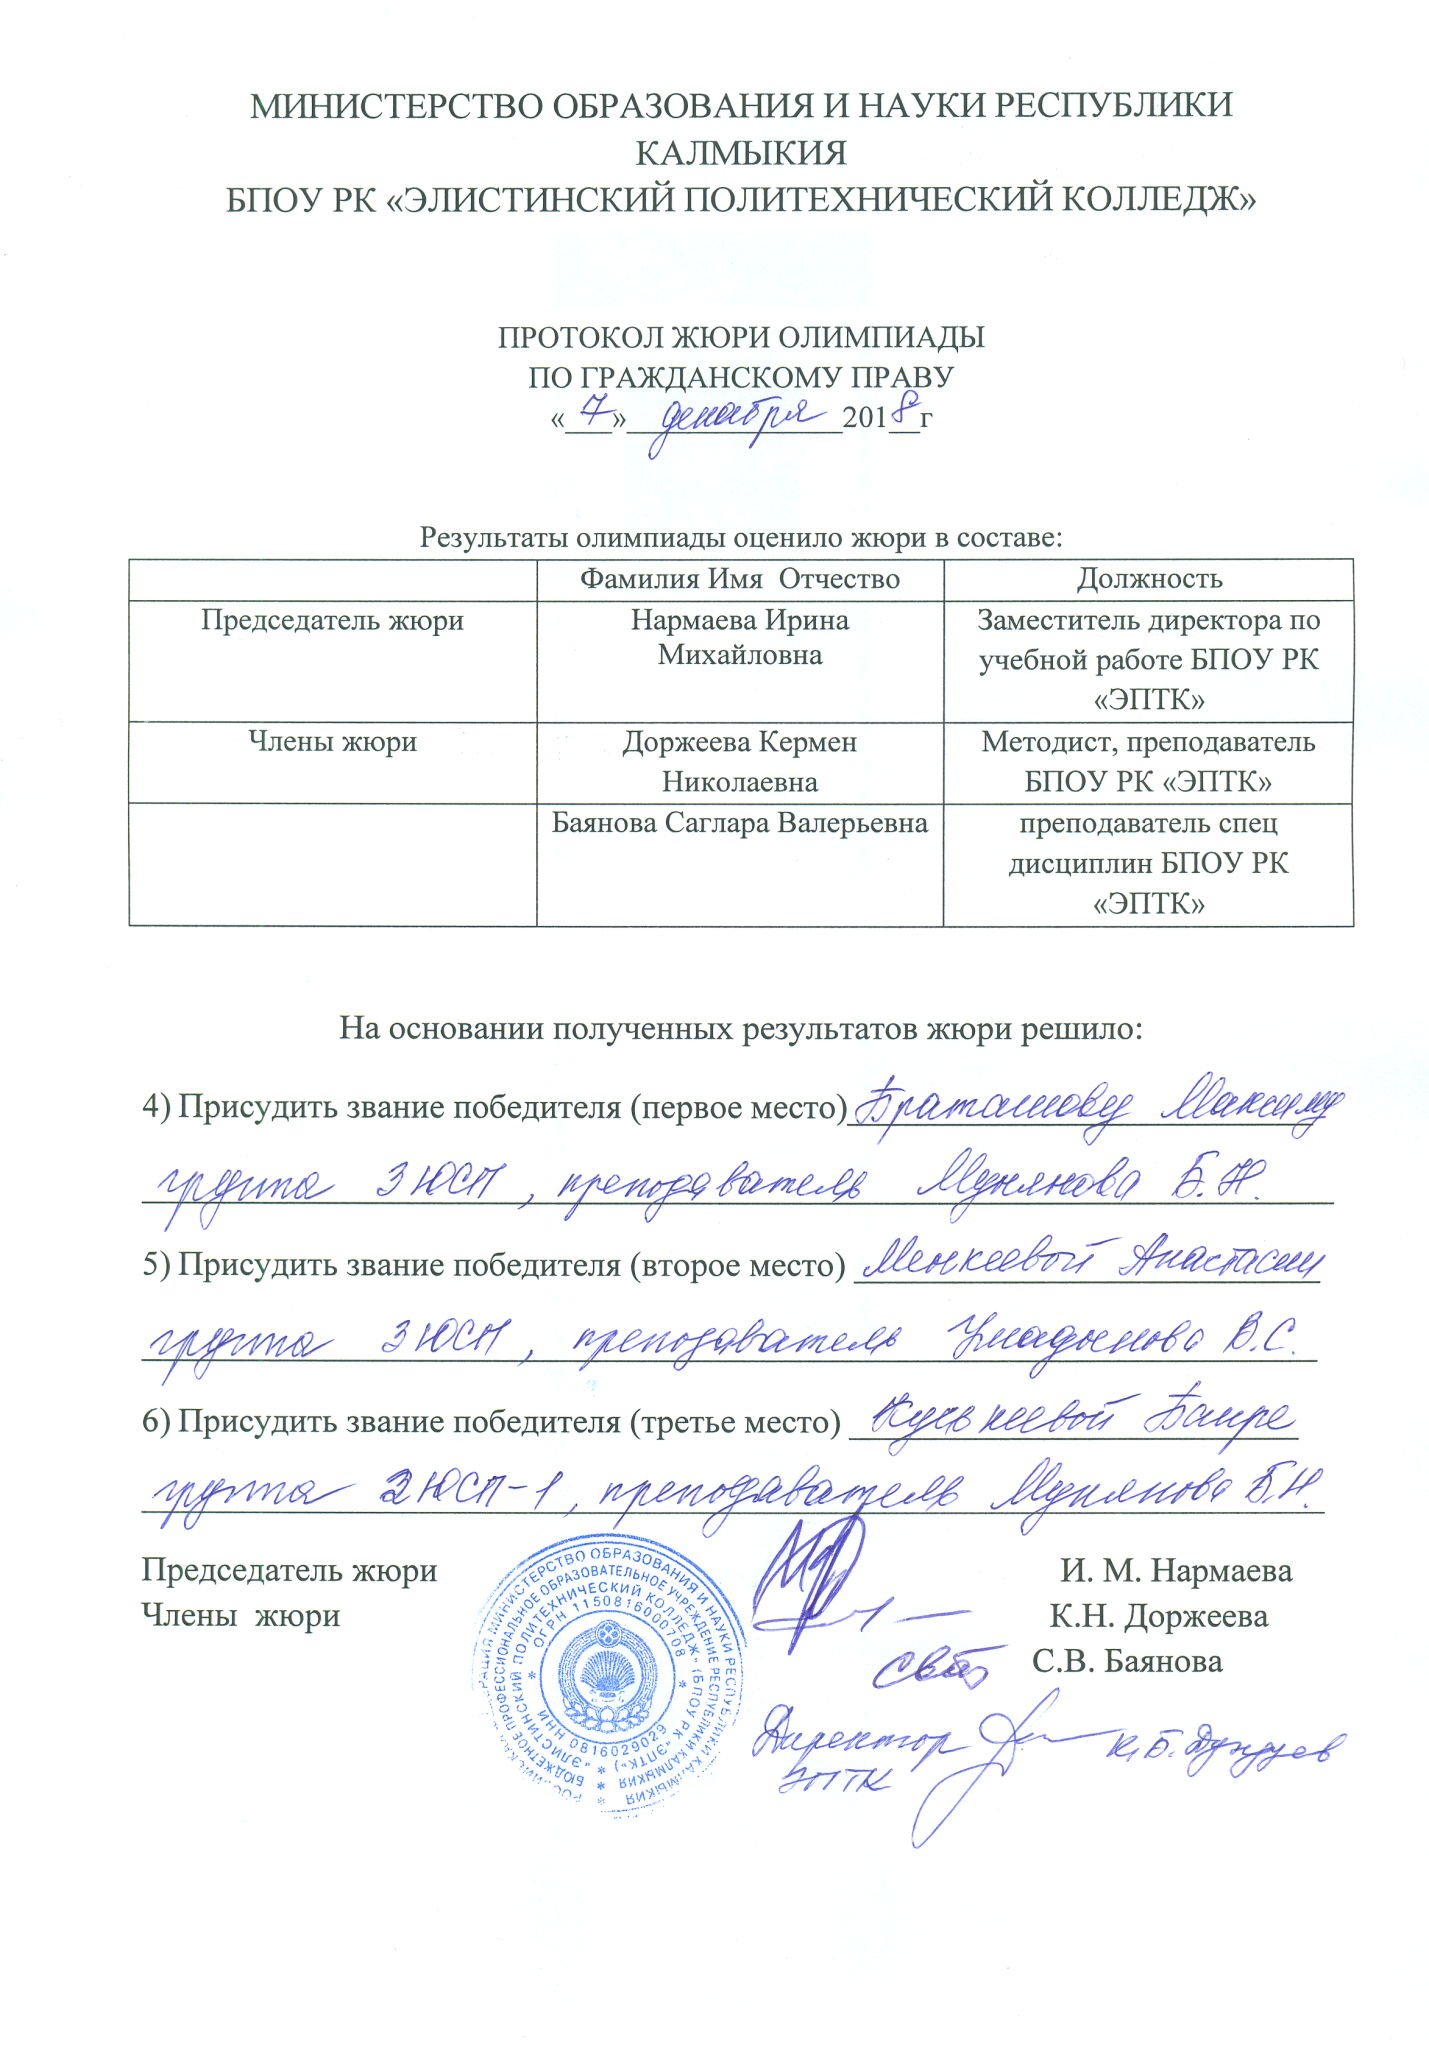 МИНИСТЕРСТВО ОБРАЗОВАНИЯ И НАУКИ РЕСПУБЛИКИ
КАЛМЫКИЯ
БПОУ РК «ЭЛИСТИНСКИЙ ПОЛИТЕХНИЧЕСКИЙ КОЛЛЕДЖ»
ПРОТОКОЛ ЖЮРИ ОЛИМПИАДЫ
ПО ГРАЖДАНСКОМУ ПРАВУ
«7» декабря 2018г
Результаты олимпиады оценило жюри в составе:
Фамилия Имя Отчество Должность
Председатель жюри Нармаева Ирина Михайловна Заместитель директора по учебной работе БПОУ РК «ЭПТК»
Члены жюри Доржеева Кермен Николаевна Методист, преподаватель БПОУ РК «ЭПТК»
Баянова Саглара Валерьевна преподаватель спец дисциплин БПОУ РК «ЭПТК»
На основании полученных результатов жюри решило:
4) Присудить звание победителя (первое место) Браташову Максиму
группа 3 ЮСП, преподаватель Мунянова Б.Н.
5) Присудить звание победителя (второе место) Менкеевой Анастасии
группа 3 ЮСП, преподаватель В.С.
6) Присудить звание победителя (третье место) Баире
группа 3ЮСП-1, преподаватель Мунянова Б.Н.
Председатель жюри И. М. Нармаева
Члены жюри К.Н. Доржеева
С.В. Баянова
Директор К.Б. Дундуев
ЭПТК
МИНИСТЕРСТВО ОБРАЗОВАНИЯ И НАУКИ РЕСПУБЛИКИ КАЛМЫКИЯ
БЮДЖЕТНОЕ ПРОФЕССИОНАЛЬНОЕ ОБРАЗОВАТЕЛЬНОЕ УЧРЕЖДЕНИЕ РЕСПУБЛИКИ КАЛМЫКИЯ
"ЭЛИСТИНСКИЙ ПОЛИТЕХНИЧЕСКИЙ КОЛЛЕДЖ" (БПОУ РК "ЭПТК")
ОГРН 1150816000708
ИНН 0816029029